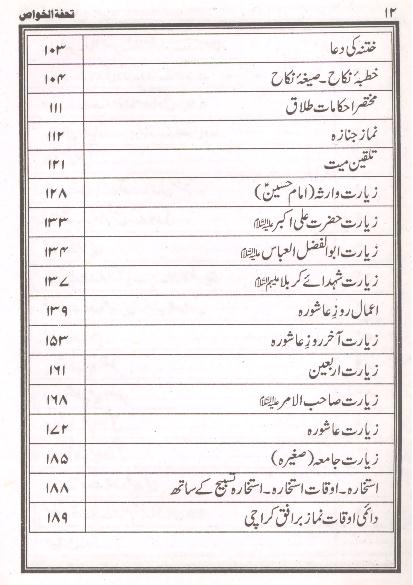 ۱۲ تحفۃ الخواص
ختنہ کی دعا ۱۰۳
خطبۂ نکاح۔ صیغۂ نکاح ۱۰۴
مختصر احکامات طلاق ۱۱۱
نماز جنازہ ۱۱۲
تلقین میت ۱۲۱
زیارت وارثہ (امام حسینؑ) ۱۲۸
زیارت حضرت علی اکبر علیہ السلام ۱۳۳
زیارت ابوالفضل العباس علیہ السلام ۱۳۴
زیارت شہدائے کربلا علیہم السلام ۱۳۷
اعمال روزِ عاشورہ ۱۳۹
زیارت آخر روزِ عاشورہ ۱۵۳
زیارت اربعین ۱۶۱
زیارت صاحب الامر علیہ السلام ۱۶۸
زیارت عاشورہ ۱۷۲
زیارت جامعہ (صغیرہ) ۱۸۵
استخارہ۔ اوقات استخارہ۔ استخارہ تسبیح کے ساتھ ۱۸۸
دائمی اوقات نماز برافق کراچی ۱۸۹